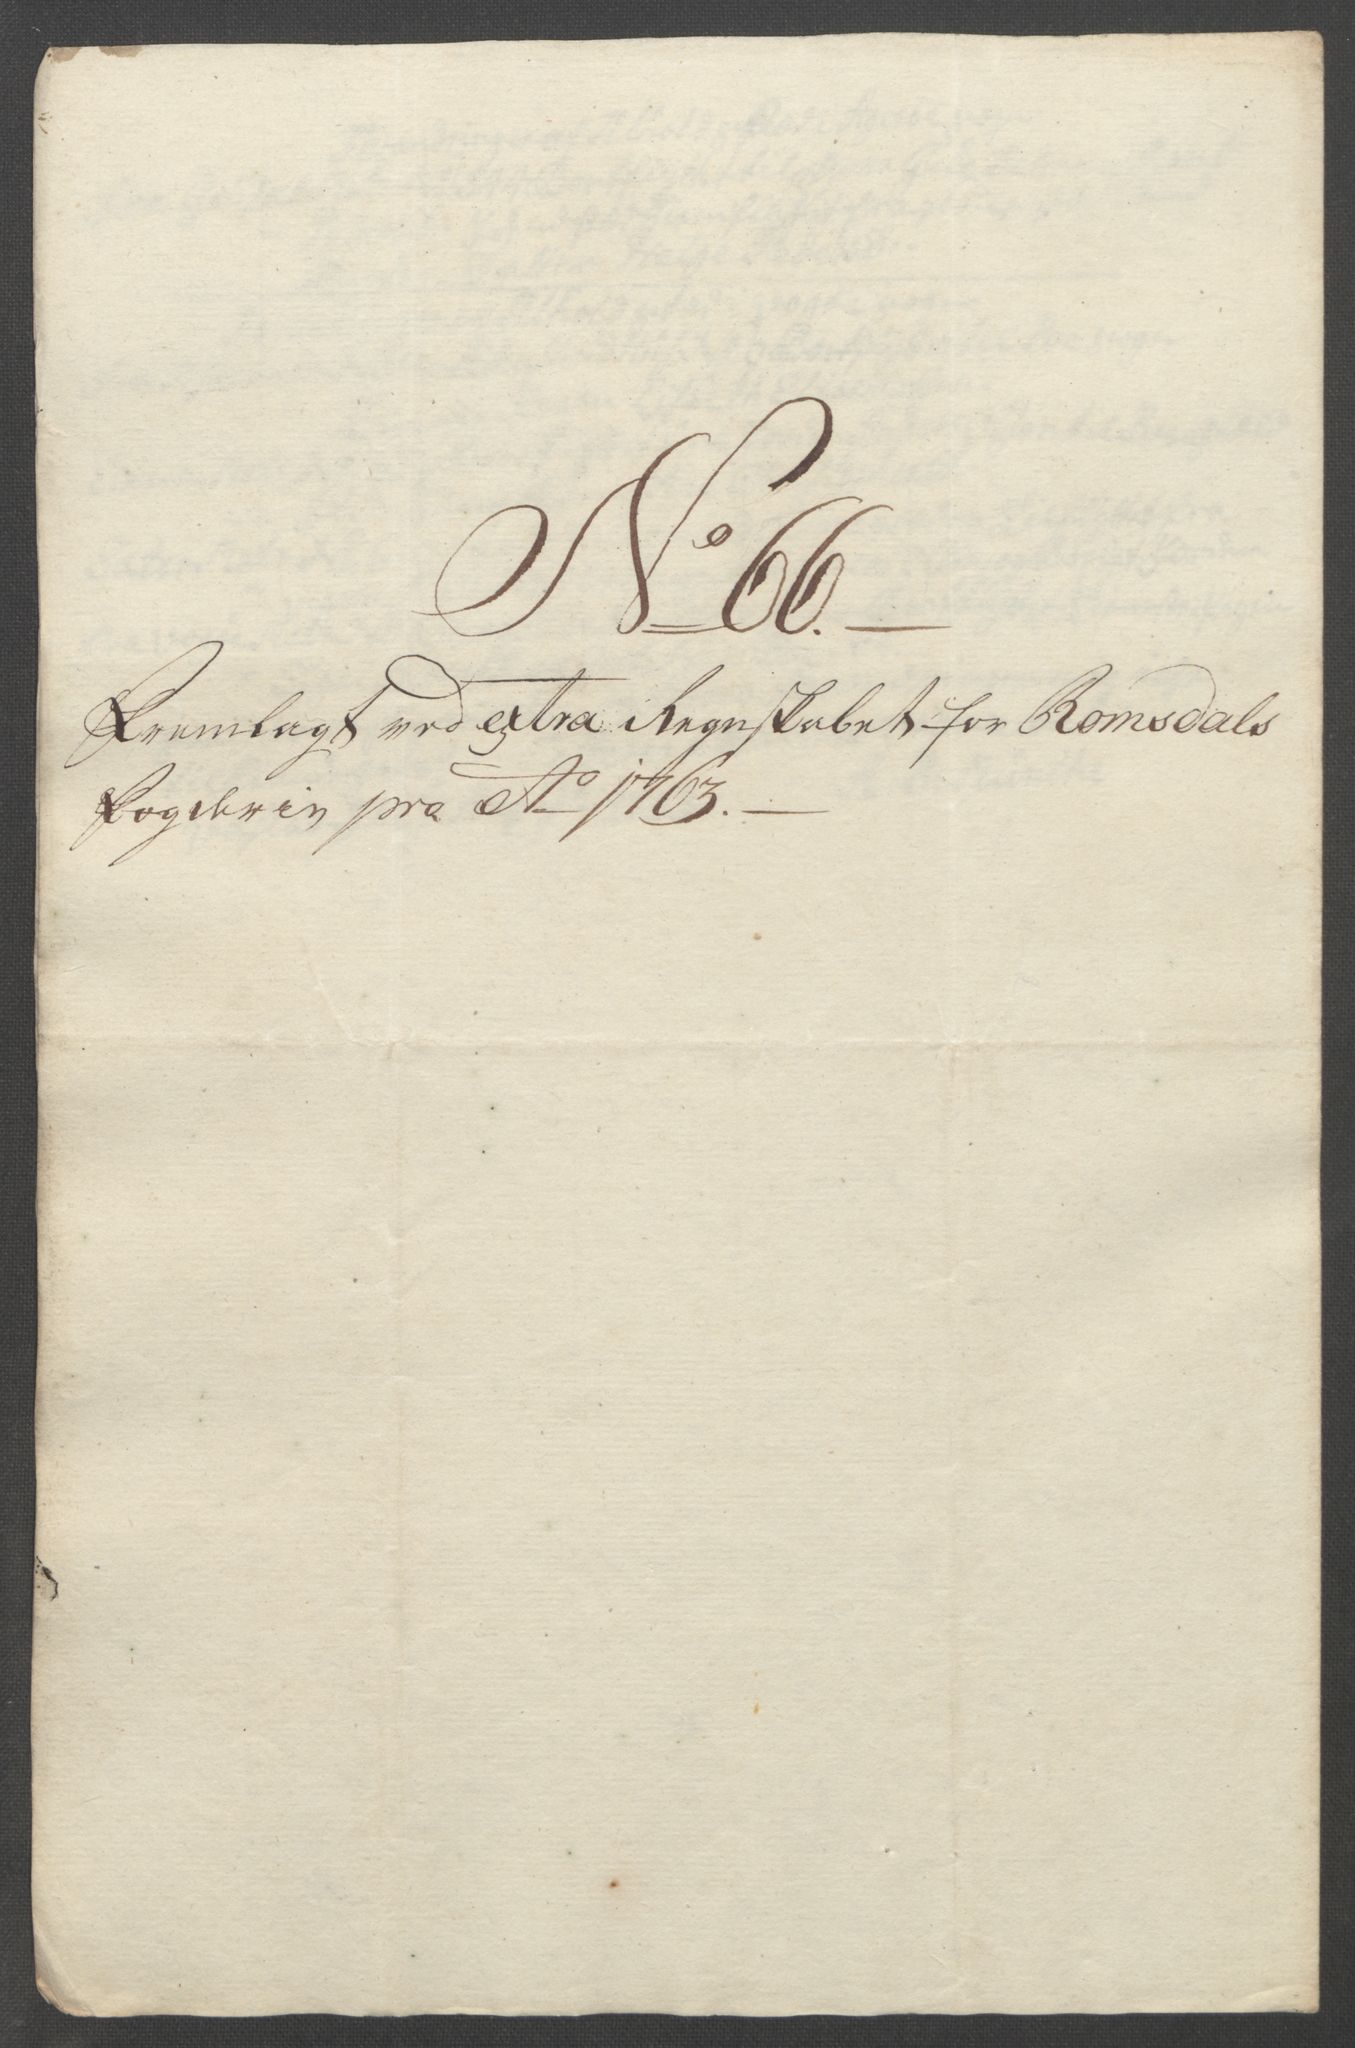 No 66. —
Fremlagt ved extra Regnskabet for Romsdals
Fogderie pro Ao 1763. —